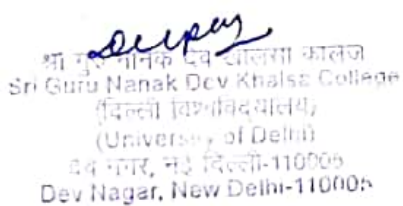 Deepay
श्री गुरु नानक देव खालसा कालेज
Sri Guru Nanak Dev Khalsa College
(दिल्ली विश्वविद्यालय)
(University of Delhi)
देव नगर, नई दिल्ली-110005
Dev Nagar, New Delhi-110005